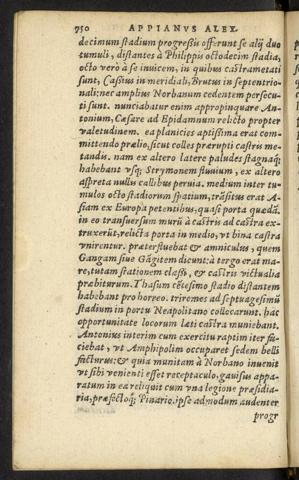 750 APPIANVS ALEX.
decimum stadium progressis offerunt se alij duo
tumuli, distantes à Philippis octodecim stadia,
octo verò à se inuicem, in quibus castrametati
sunt, Cassius in meridiali, Brutus in septentrio-
nali: nec amplius Norbanum cedentem persecu-
ti sunt. nunciabatur enim appropinquare An-
tonium, Cæsare ad Epidamnum relicto propter
valetudinem. ea planicies aptissima erat com-
mittendo prælio, sicut colles prærupti castris me-
tandis. nam ex altero latere paludes stagnaq́;
habebant vsq; Strymonem fluuium, ex altero
aspreta nullis callibus peruia. medium inter tu-
mulos octo stadiorum spatium, trāsitus erat A-
siam ex Europa petentibus, quasi porta quædā.
in eo transuersum murū à castris ad castra ex-
truxerūt, relicta porta in medio, vt bina castra
vnirentur. præterfluebat & amniculus, quem
Gangam siue Gāgitem dicunt: à tergo erat ma-
re, tutam stationem classi, & castris victualia
præbiturum. Thasum cētesimo stadio distantem
habebant pro horreo. triremes ad septuagesimū
stadium in portu Neapolitano collocarunt. hac
opportunitate locorum lati castra muniebant.
Antonius interim cum exercitu raptim iter fa-
ciebat, vt Amphipolim occuparet sedem belli
facturus: & quia munitam à Norbano inuenit
vt sibi venienti esset receptaculo, gauisus appa-
ratum in ea reliquit cum vna legione præsidia-
ria, præfectoq́; Pinario. ipse admodum audenter
progr